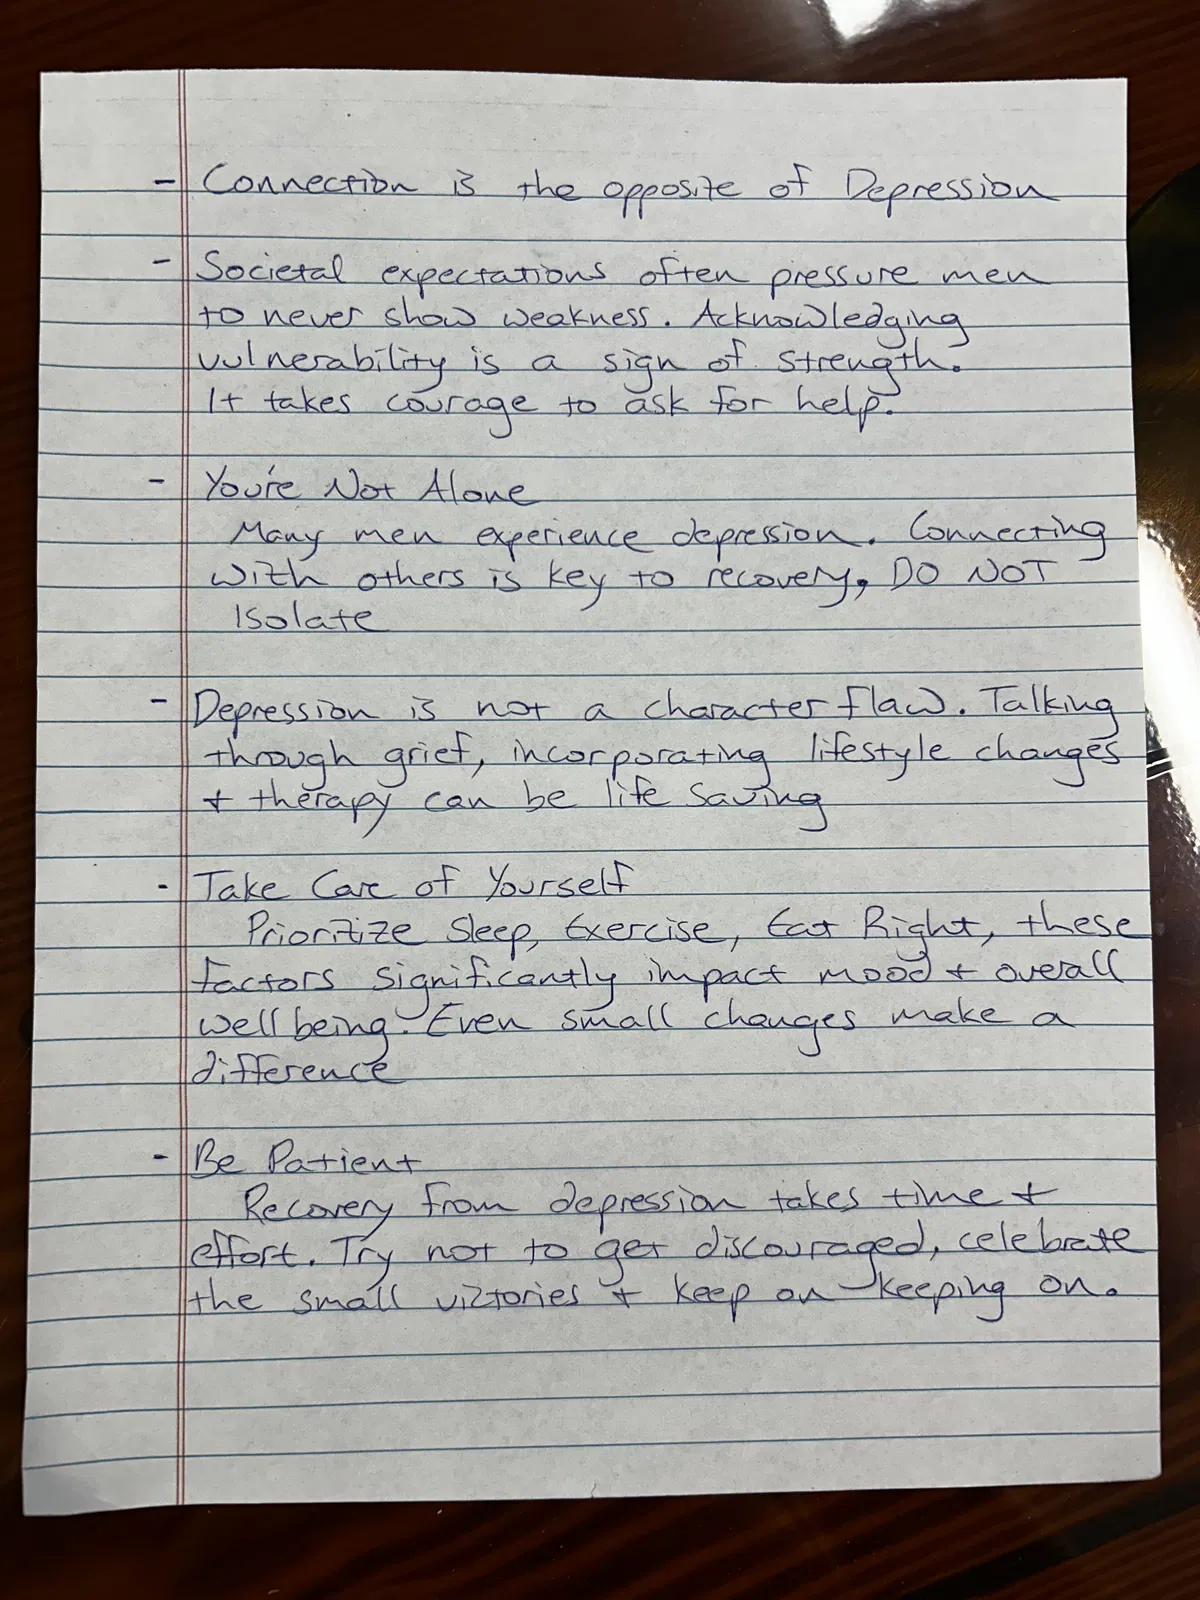 - Connection is the opposite of Depression
- Societal expectations often pressure men
to never show weakness. Acknowledging
vulnerability is a sign of strength.
It takes courage to ask for help.
- You're Not Alone
Many men experience depression. Connecting
with others is key to recovery, DO NOT
Isolate
- Depression is not a character flaw. Talking
through grief, incorporating lifestyle changes
+ therapy can be life saving
- Take Care of Yourself
Prioritize Sleep, Exercise, Eat Right, these
factors significantly impact mood + overall
well being. Even small changes make a
difference
- Be Patient
Recovery from depression takes time +
effort. Try not to get discouraged, celebrate
the small victories + keep on keeping on.